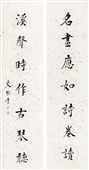 名畫應如詩卷讀
溪聲時作古琴聽